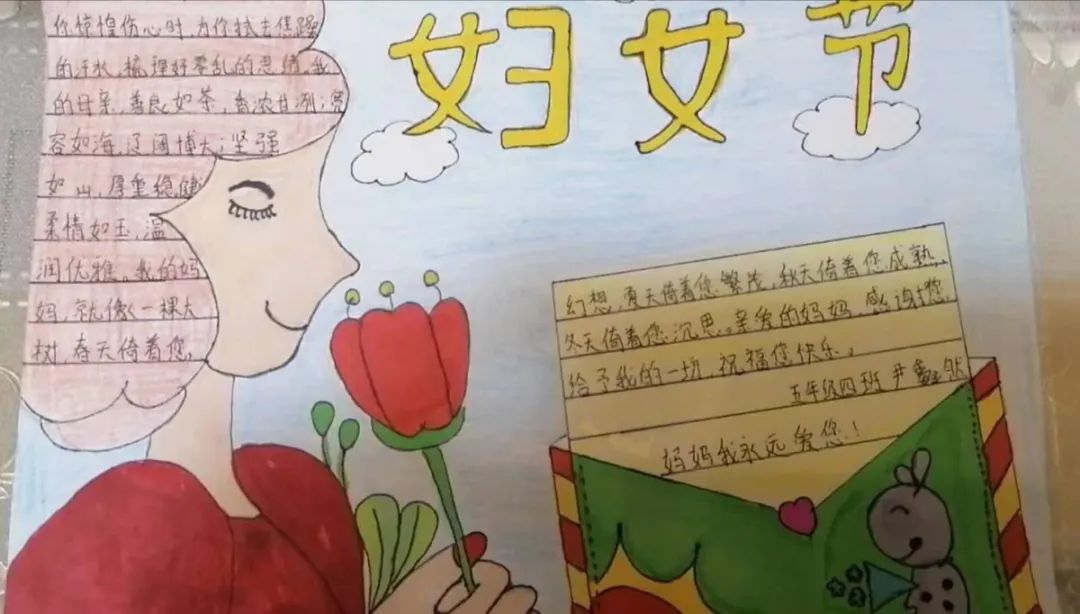 妇女节
你惊惶伤心时,为你拭去焦躁
的汗水,梳理好零乱的思绪。我
的母亲,善良如茶,香浓甘冽;宽
容如海,辽阔博大;坚强
如山,厚重稳健
柔情如玉,温
润优雅。我的妈
妈,就像一棵大
树,春天倚着您,
幻想,夏天倚着您繁茂,秋天倚着您成熟,
冬天倚着您沉思。亲爱的妈妈,感谢您,
给予我的一切,祝福您快乐。
五年级四班 尹 然
妈妈我永远爱您!